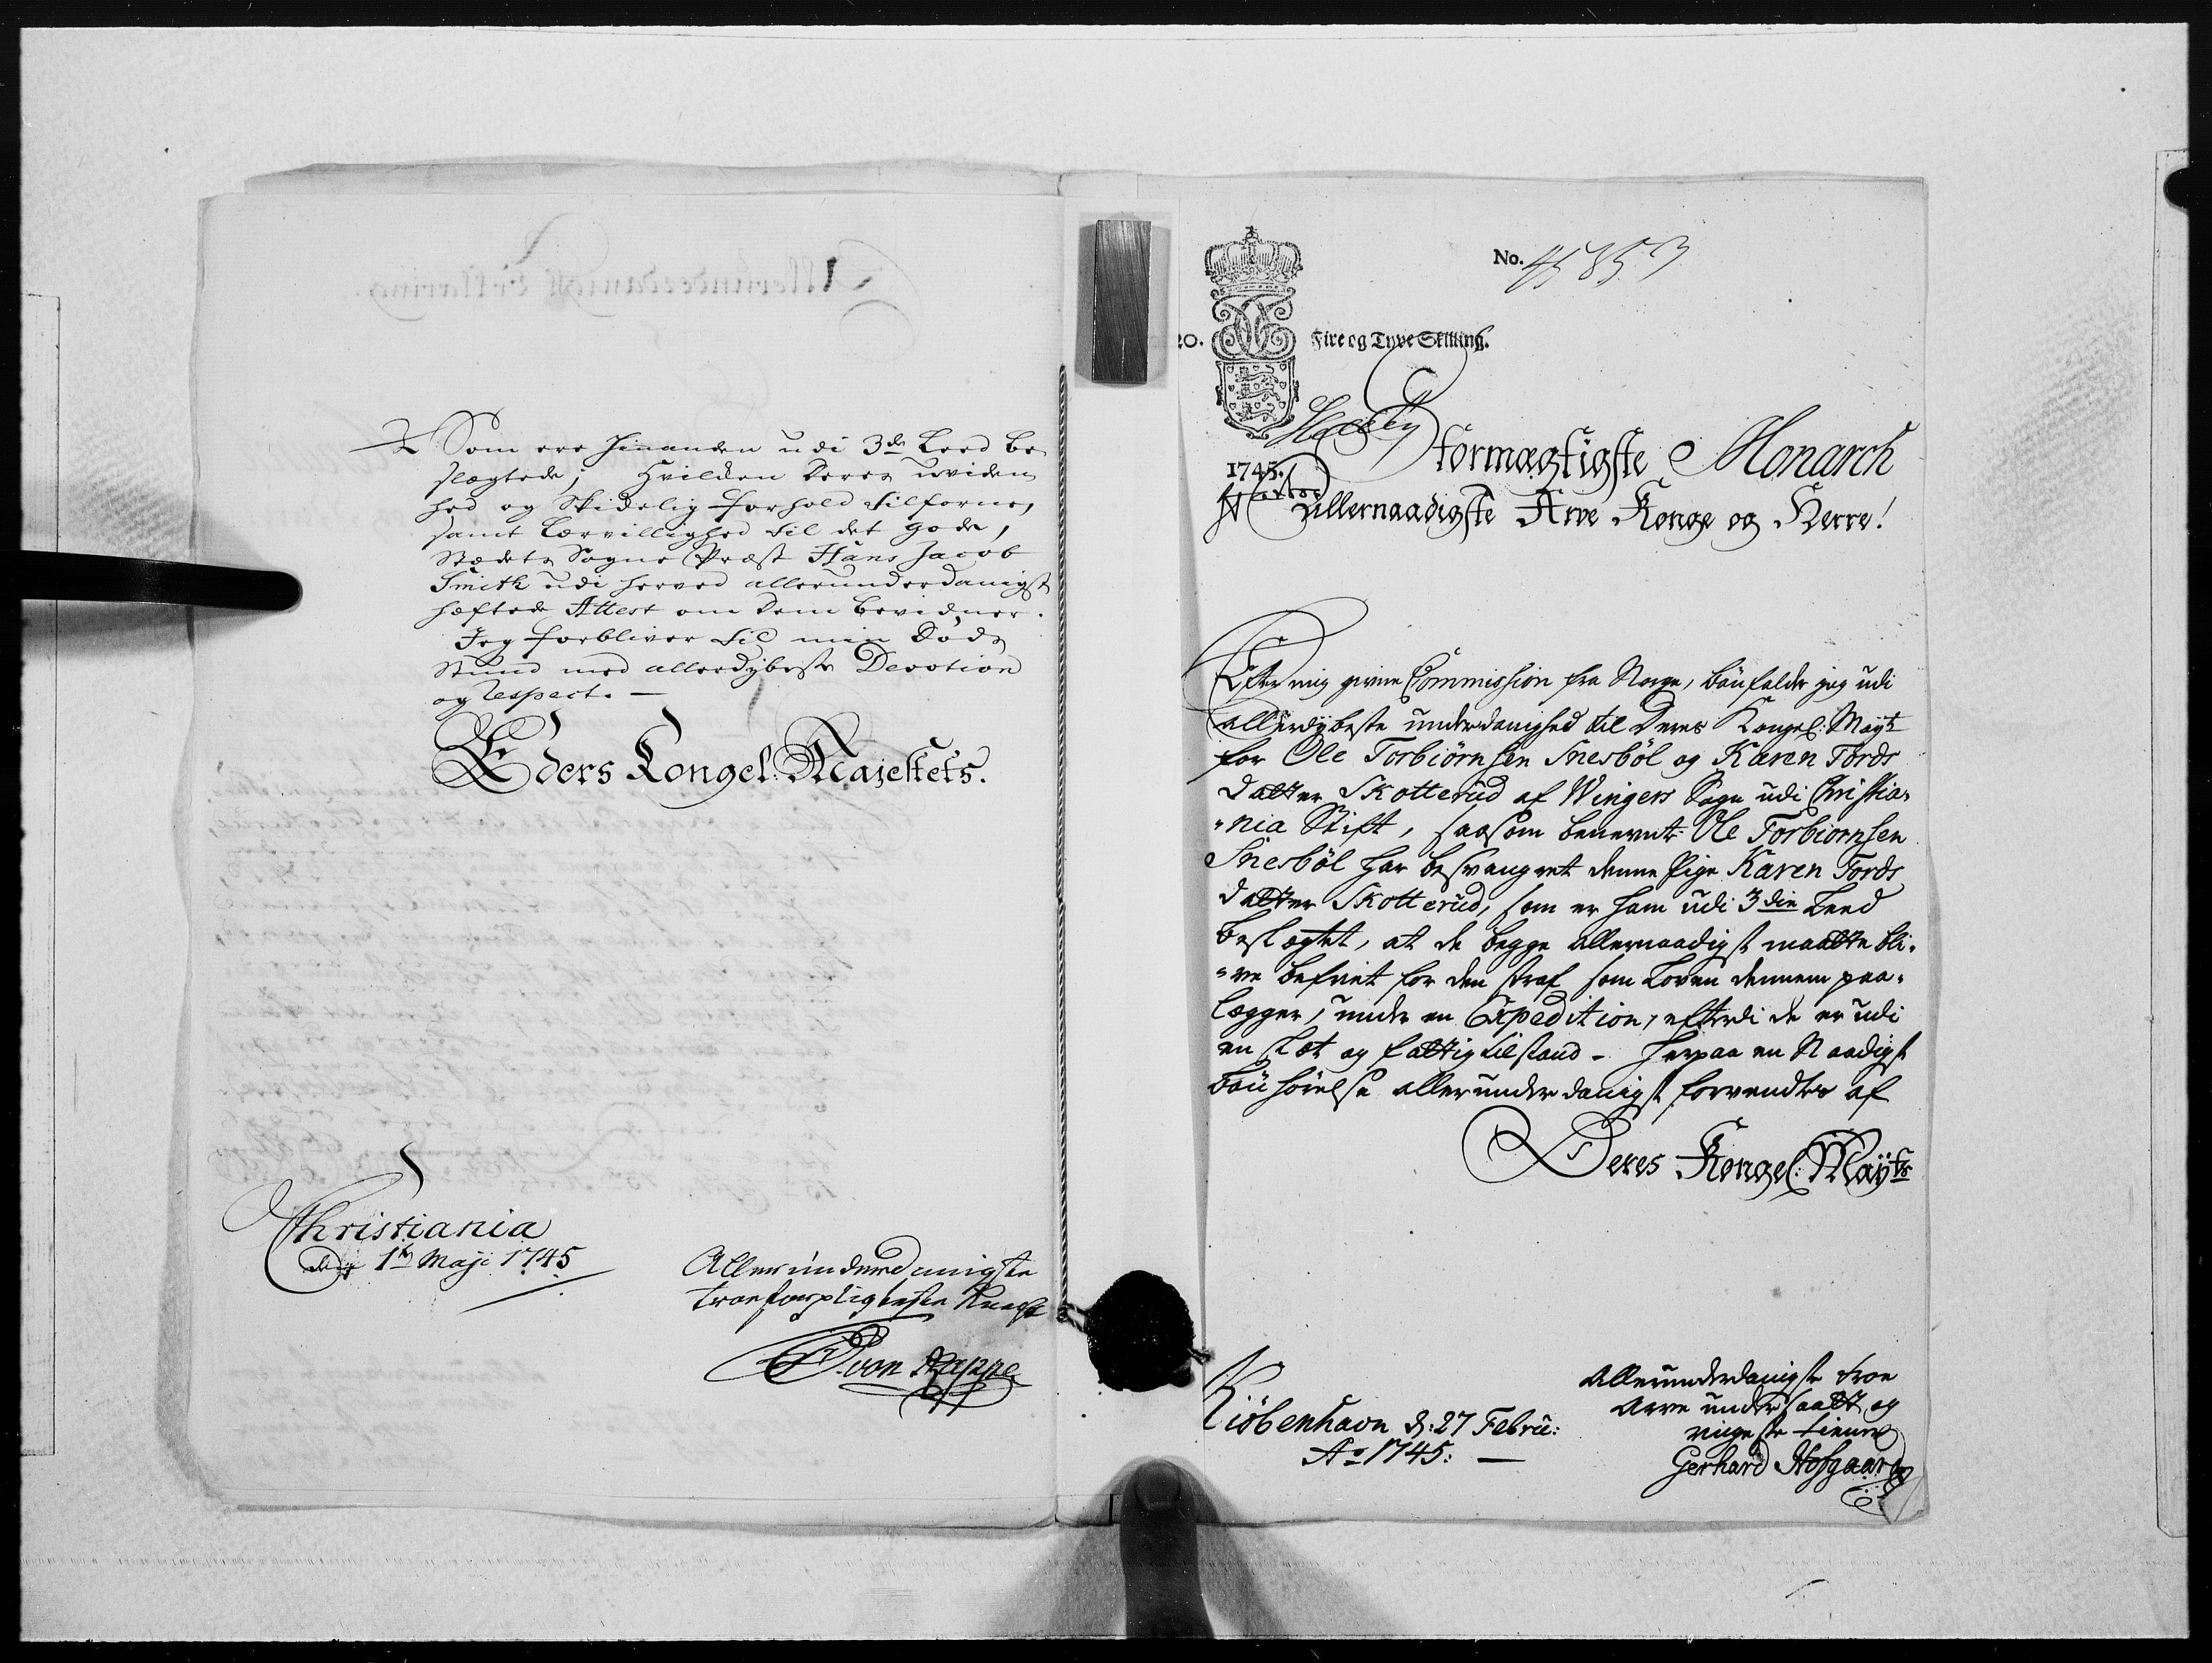 Som ere hinanden udi 3de Leed be
slægtede; Hvilken deres uviden
hed og Skikelig forhold tilforne,
samt Lærvillighed til det gode,
Stædets Sogne Præst Hans Jacob
Smith udi herved allerunderdanigst
hæftede Attest om dem bevidner.
Jeg forbliver til min Døds
Stund med allerdybeste Devotion
og respect. —
Eders Kongel: Majestets.
Christiania
den 1te Maji 1745
Allerunderdanigste
troe forpligteste Knegt
von Rappe
No. 45853
20. Fire og Tyve Skilling.
1745.
Stormægtigste Monarch
Allernaadigste Arve Konge og Herre!
Efter mig given Commission fra Norge, bønfalder jeg udi
allerdybeste underdanighed til Deres Kongel: Mayt
for Ole Torbiörnsen Snesböl og Karen Tords
datter Skotterud af Wingers Sogn udi Christia-
-nia Stift, saasom benevnte Ole Torbiornsen
Snesböl har besvangret denne Pige Karen Tords
datter Skotterud, som er ham udi 3die Leed
beslægtet, at de begge allernaadigst maatte bli-
-ve befriet for den straf som Loven dennem paa-
lægger, under en Expedition, efterdi de er udi
en slæt og fattig tilstand - herpaa en Naadigst
bönhörelse allerunderdanigst forventes af
Deres Kongel: Mayts
Kiöbenhavn d: 27 Febru:
Ao 1745: —
Allerunderdanigste troe
Arve undersaatt og
ringeste tienere
Gerhard Hofgaard